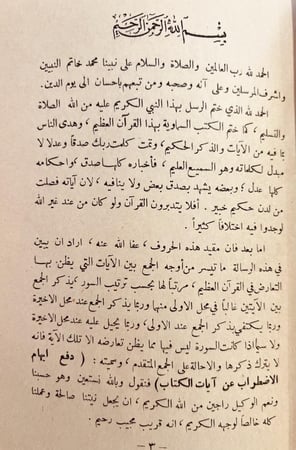 بسم الله الرحمن الرحيم
الحمد لله رب العالمين والصلاة والسلام على نبينا محمد خاتم النبيين
واشرف المرسلين وعلى آله وصحبه ومن تبعهم باحسان الى يوم الدين.
الحمد لله الذي ختم الرسل بهذا النبي الكريم عليه من الله الصلاة
والتسليم، كما ختم الكتب السماوية بهذا القرآن العظيم، وهدى الناس
بما فيه من الآيات والذكر الحكيم، وتمت كلمات ربك صدقاً وعدلا لا
مبدل لكلماته وهو السميع العليم، فأخباره كلها صدق، واحكامه
كلها عدل، وبعضه يشهد بصدق بعض ولا ينافيه، لان آياته فصلت
من لدن حكيم خبير. أفلا يتدبرون القرآن ولو كان من عند غير الله
لوجدوا فيه اختلافاً كثيراً.
اما بعد فان مقيد هذه الحروف، عفا الله عنه، اراد ان يبين
في هذه الرسالة ما تيسر من أوجه الجمع بين الآيات التي يظن بها
التعارض في القرآن العظيم، مرتباً لها بحسب ترتيب السور، يذكر الجمع
بين الآيتين غالباً في محل الاولى منها وربما يذكر الجمع عند محل الاخيرة
وربما يكتفي بذكر الجمع عند الاولى، وربما يحيل عليه عند محل الاخيرة
ولا سيما اذا كانت السورة ليس فيها مما يظن تعارضه الا تلك الآية فانه
لا يترك ذكرها والاحالة على الجمع المتقدم، وسميته: ( دفع ايهام
الاضطراب عن آيات الكتاب ) فنقول وبالله نستعين وهو حسبنا
ونعم الوكيل راجين من الله الكريم، ان يجعل نيتنا صالحة وعملنا
كله خالصاً لوجهه الكريم، انه قريب مجيب رحيم:
- ٣ -